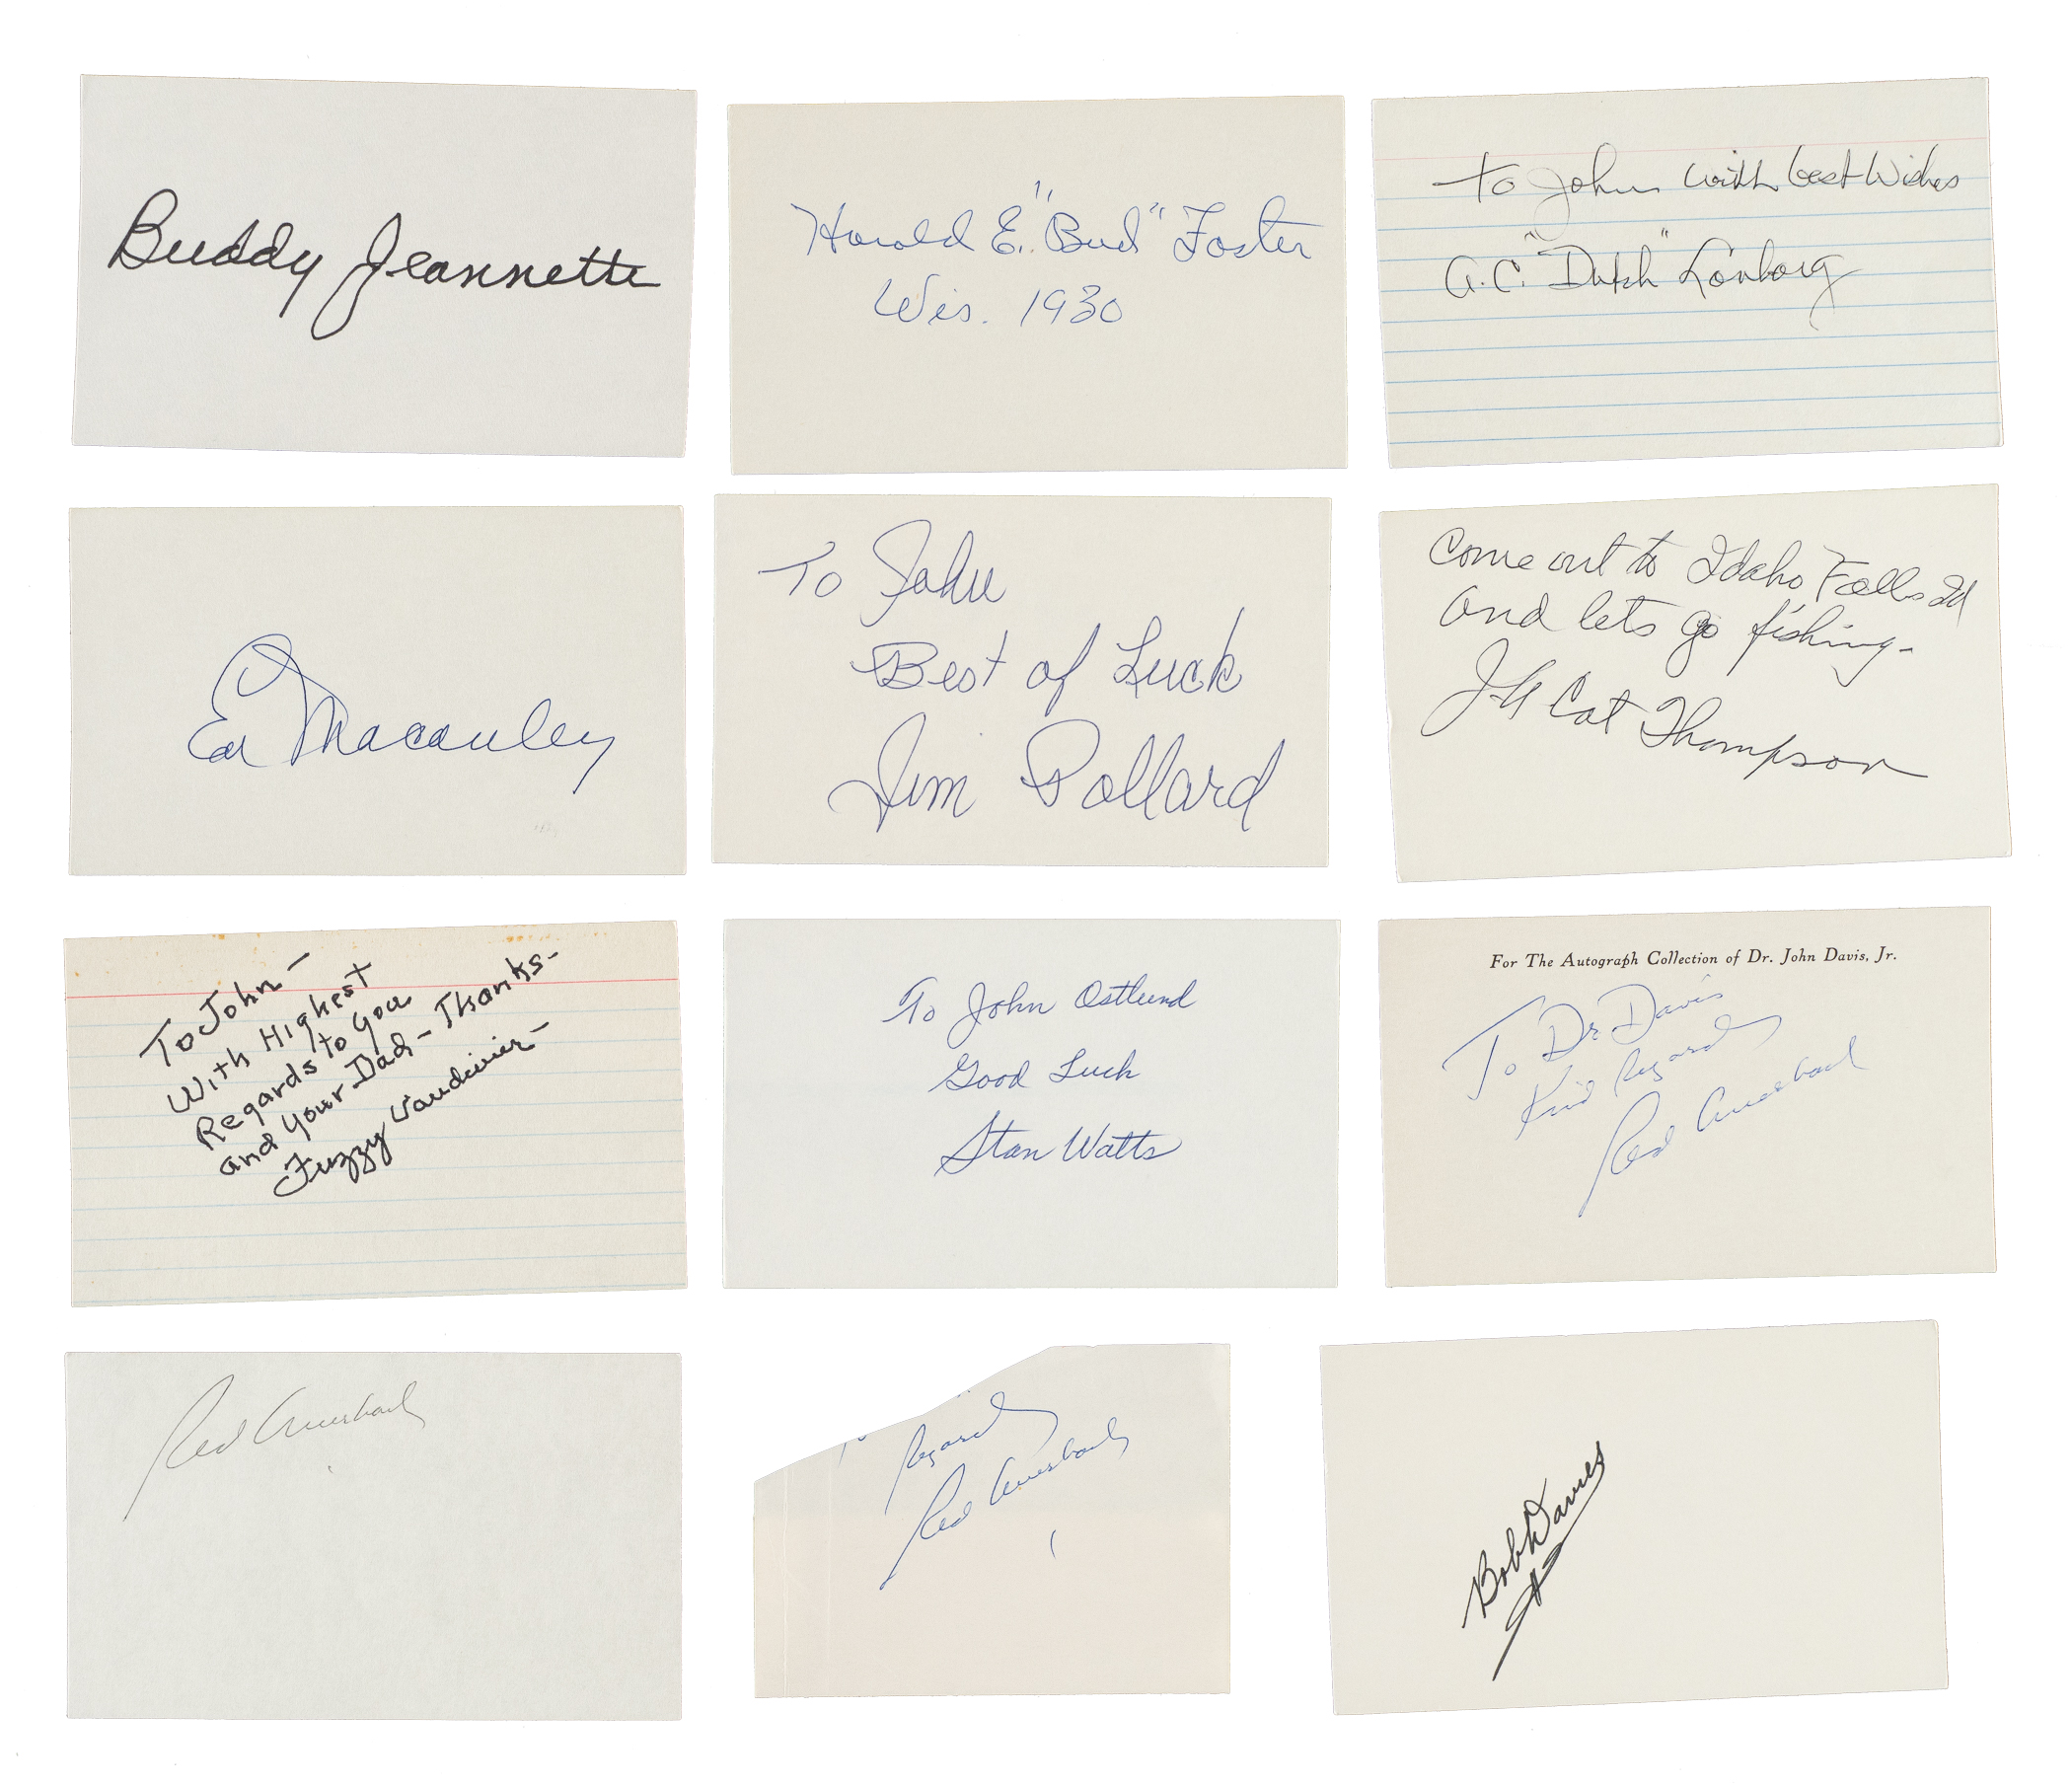 Buddy Jeannette
Harold E. "Bud" Foster
Wis. 1930
To John with best wishes
A.C. "Dutch" Lonborg
Ed Macauley
To John
Best of Luck
Jim Pollard
Come out to Idaho Falls Id
and lets go fishing-
J.A Cat Thompson
To John-
With Highest
Regards to you
and your Dad- Thanks-
Fuzzy Vandivier-
To John Ostlund
Good Luck
Stan Watts
For The Autograph Collection of Dr. John Davis, Jr.
To Dr Davis
Kind Regards
Red Auerbach
Red Auerbach
Regards
Red Auerbach
Bob Davies